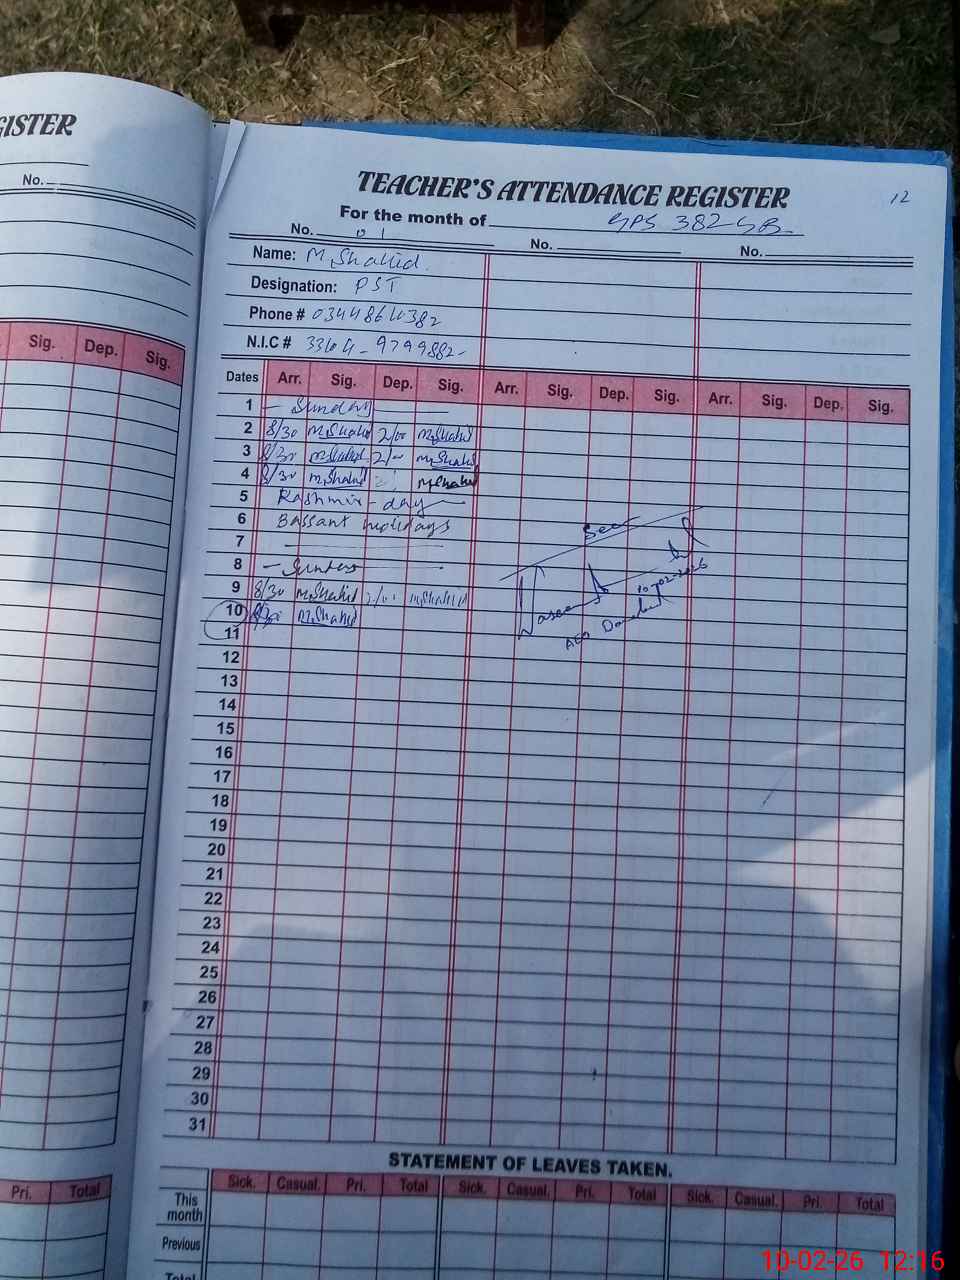 GISTER
No.
TEACHER'S ATTENDANCE REGISTER
12
For the month of GPS 382 GB.
No. 01 No. No.
Name: M.Shahid
Designation: PST
Phone #
N.I.C #
Sig. Dep. Sig.
Dates Arr. Sig. Dep. Sig. Arr. Sig. Dep. Sig. Arr. Sig. Dep. Sig.
1 - Sunday
2 8/30 M.Shahid 2/00 M.Shahid
3 8/30 M.Shahid 2/00 M.Shahid
4 8/30 M.Shahid M.Shahid
5 Kashmir - day
6 Bassant holidays
7
8 - Sunday
9 8/30 M.Shahid 2/00 M.Shahid
10 8/30 M.Shahid
11
Seen
10-02-2026
AEO
12
13
14
15
16
17
18
19
20
21
22
23
24
25
26
27
28
29
30
31
STATEMENT OF LEAVES TAKEN.
Pri. Total
Sick. Casual. Pri. Total Sick. Casual. Pri. Total Sick. Casual. Pri. Total
This month
Previous
Total
10-02-26 12:16